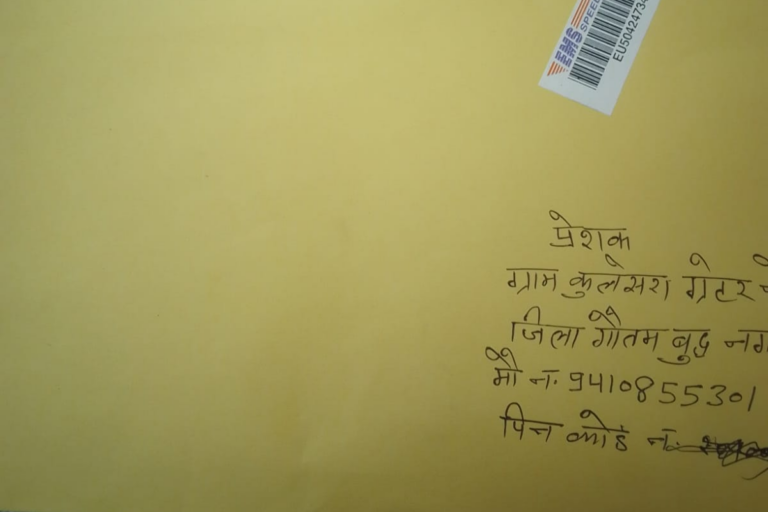 EMS SPEE
EU50424734
प्रेशक
ग्राम कुलेसरा ग्रेटर
जिला गौतम बुद्ध नग
मो नं. 9410855301
पिन कोड नं.